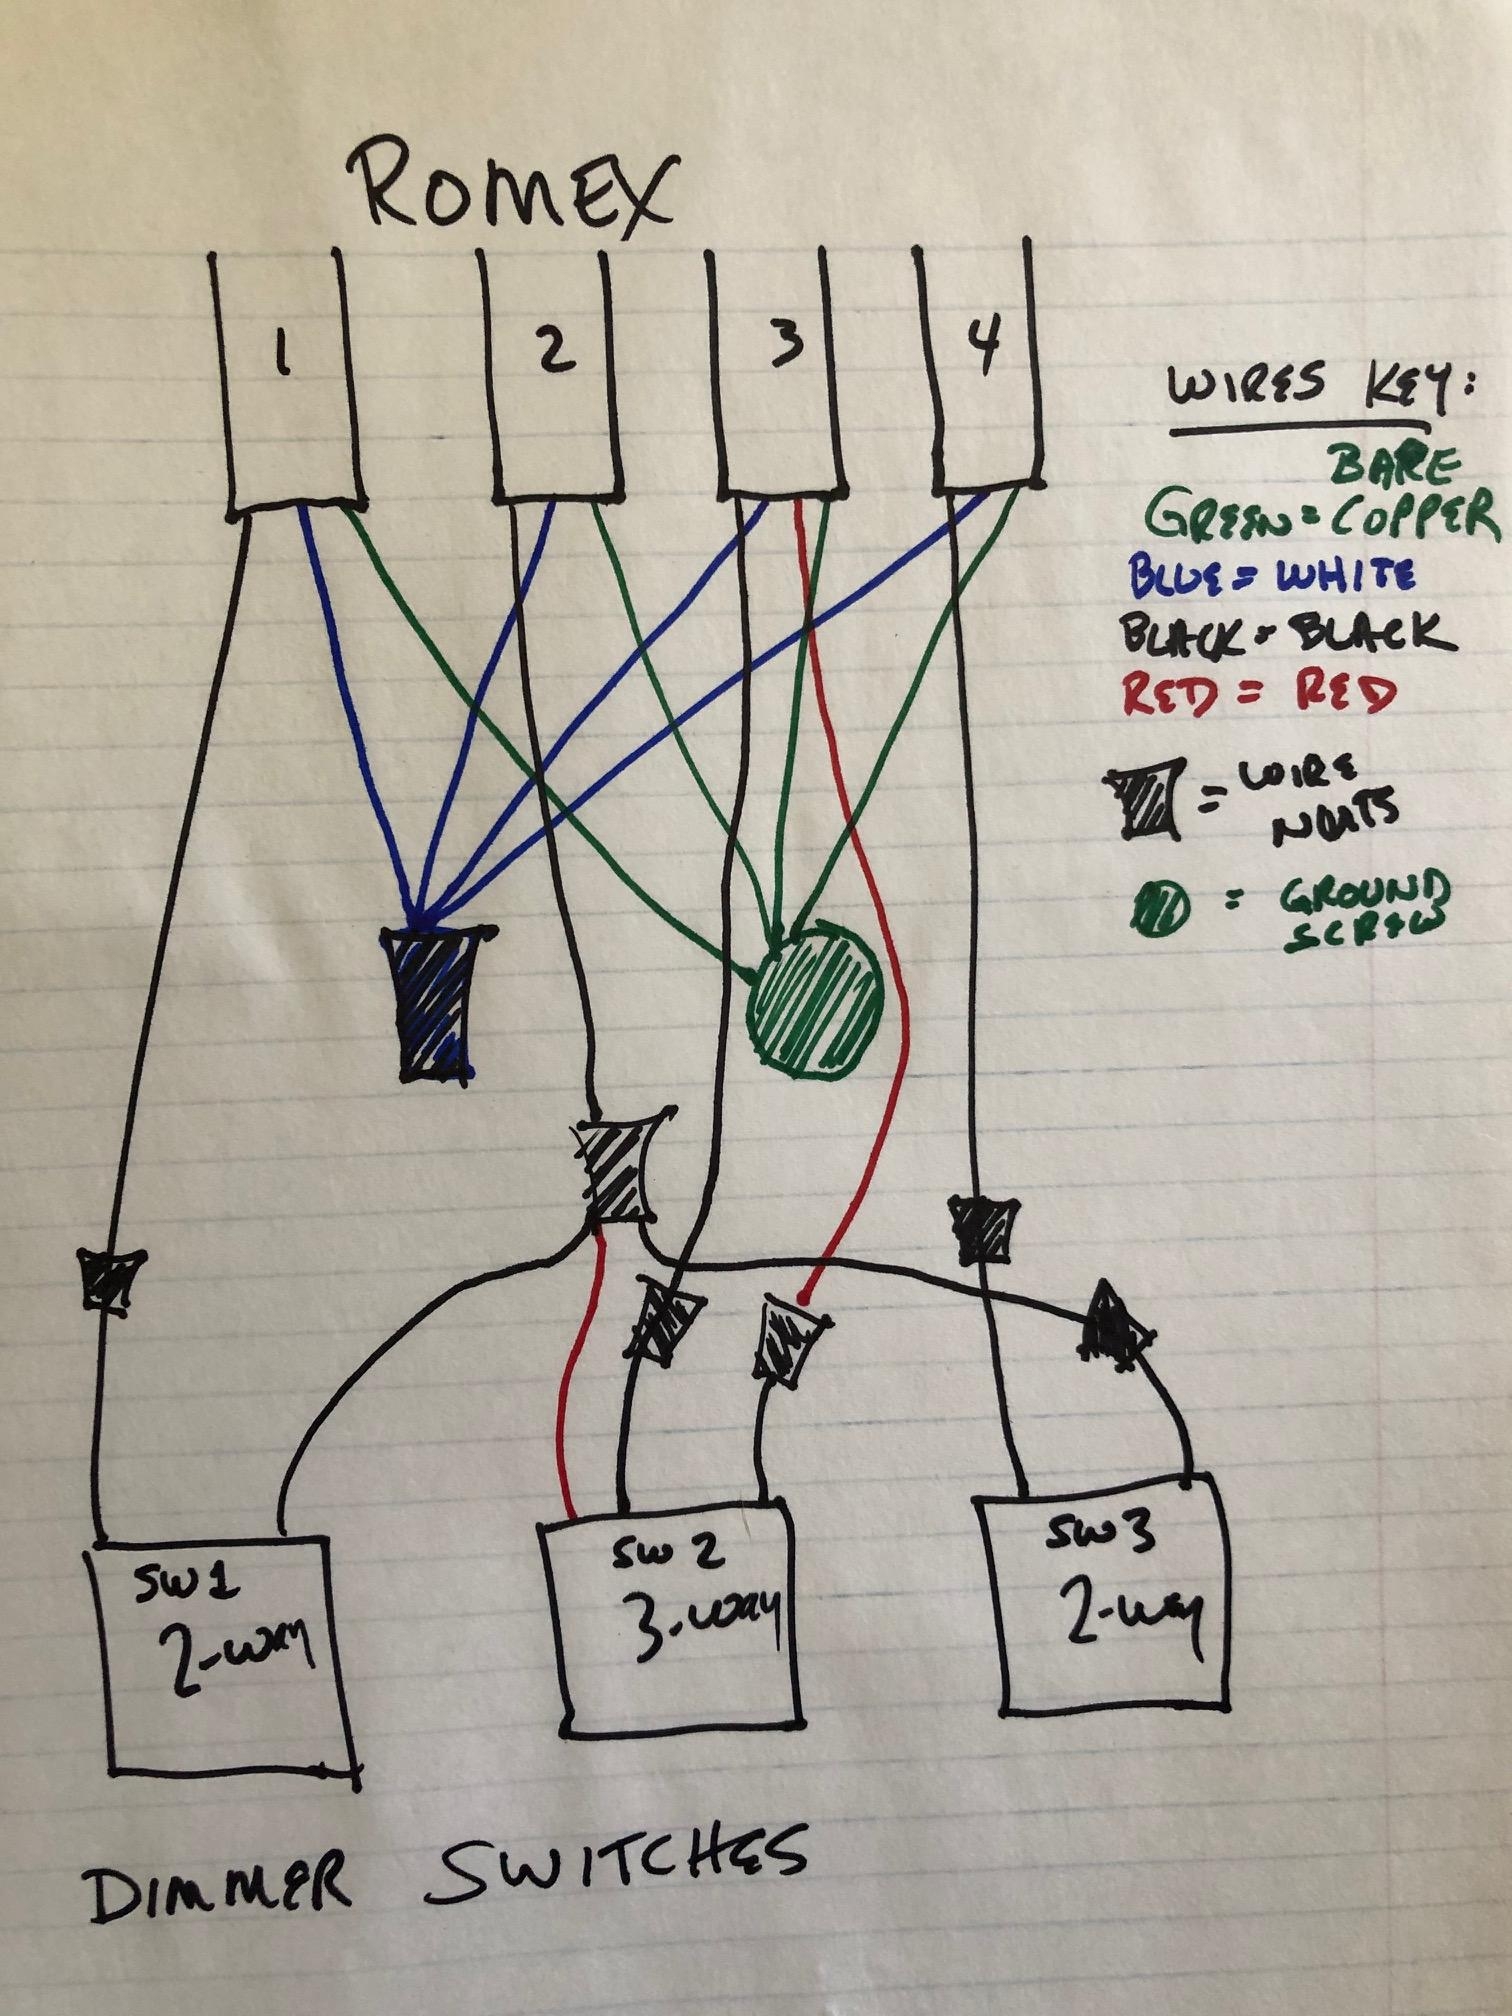 ROMEX
1 2 3 4
WIRES KEY:
BARE
GREEN = COPPER
BLUE = WHITE
BLACK = BLACK
RED = RED
= WIRE
NUTS
= GROUND
SCREW
SW1
2-way
SW 2
3-way
SW3
2-way
DIMMER SWITCHES